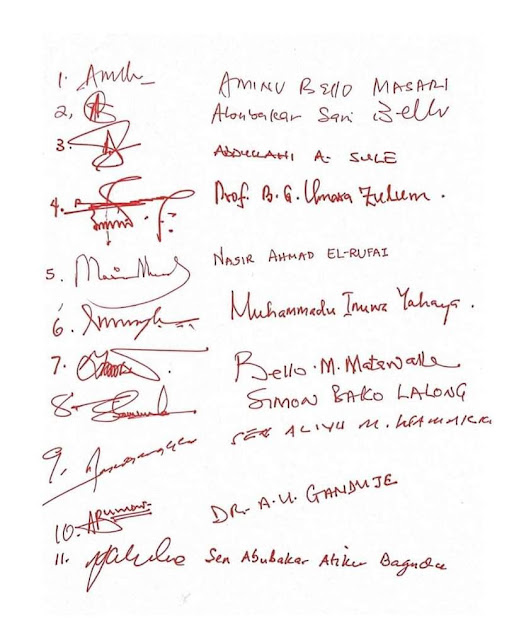 1. AMINU BELLO MASARI
2, Abubakar Sani Bello
3. ABDULLAHI A. SULE
4. Prof. B. G. Umara Zulum.
5. NASIR AHMAD EL-RUFAI
6. Muhammadu Inuwa Yahaya.
7. Bello. M. Matawalle
8. SIMON BAKO LALONG
9. SEN ALIYU M. WAMAKKO
10. DR. A. U. GANDUJE
11. Sen Abubakar Atiku Bagudu